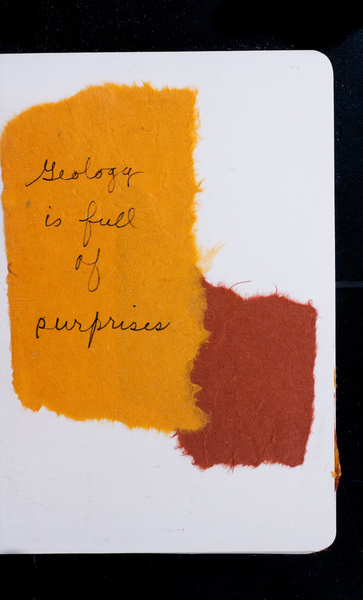 Geology
is full
of
surprises